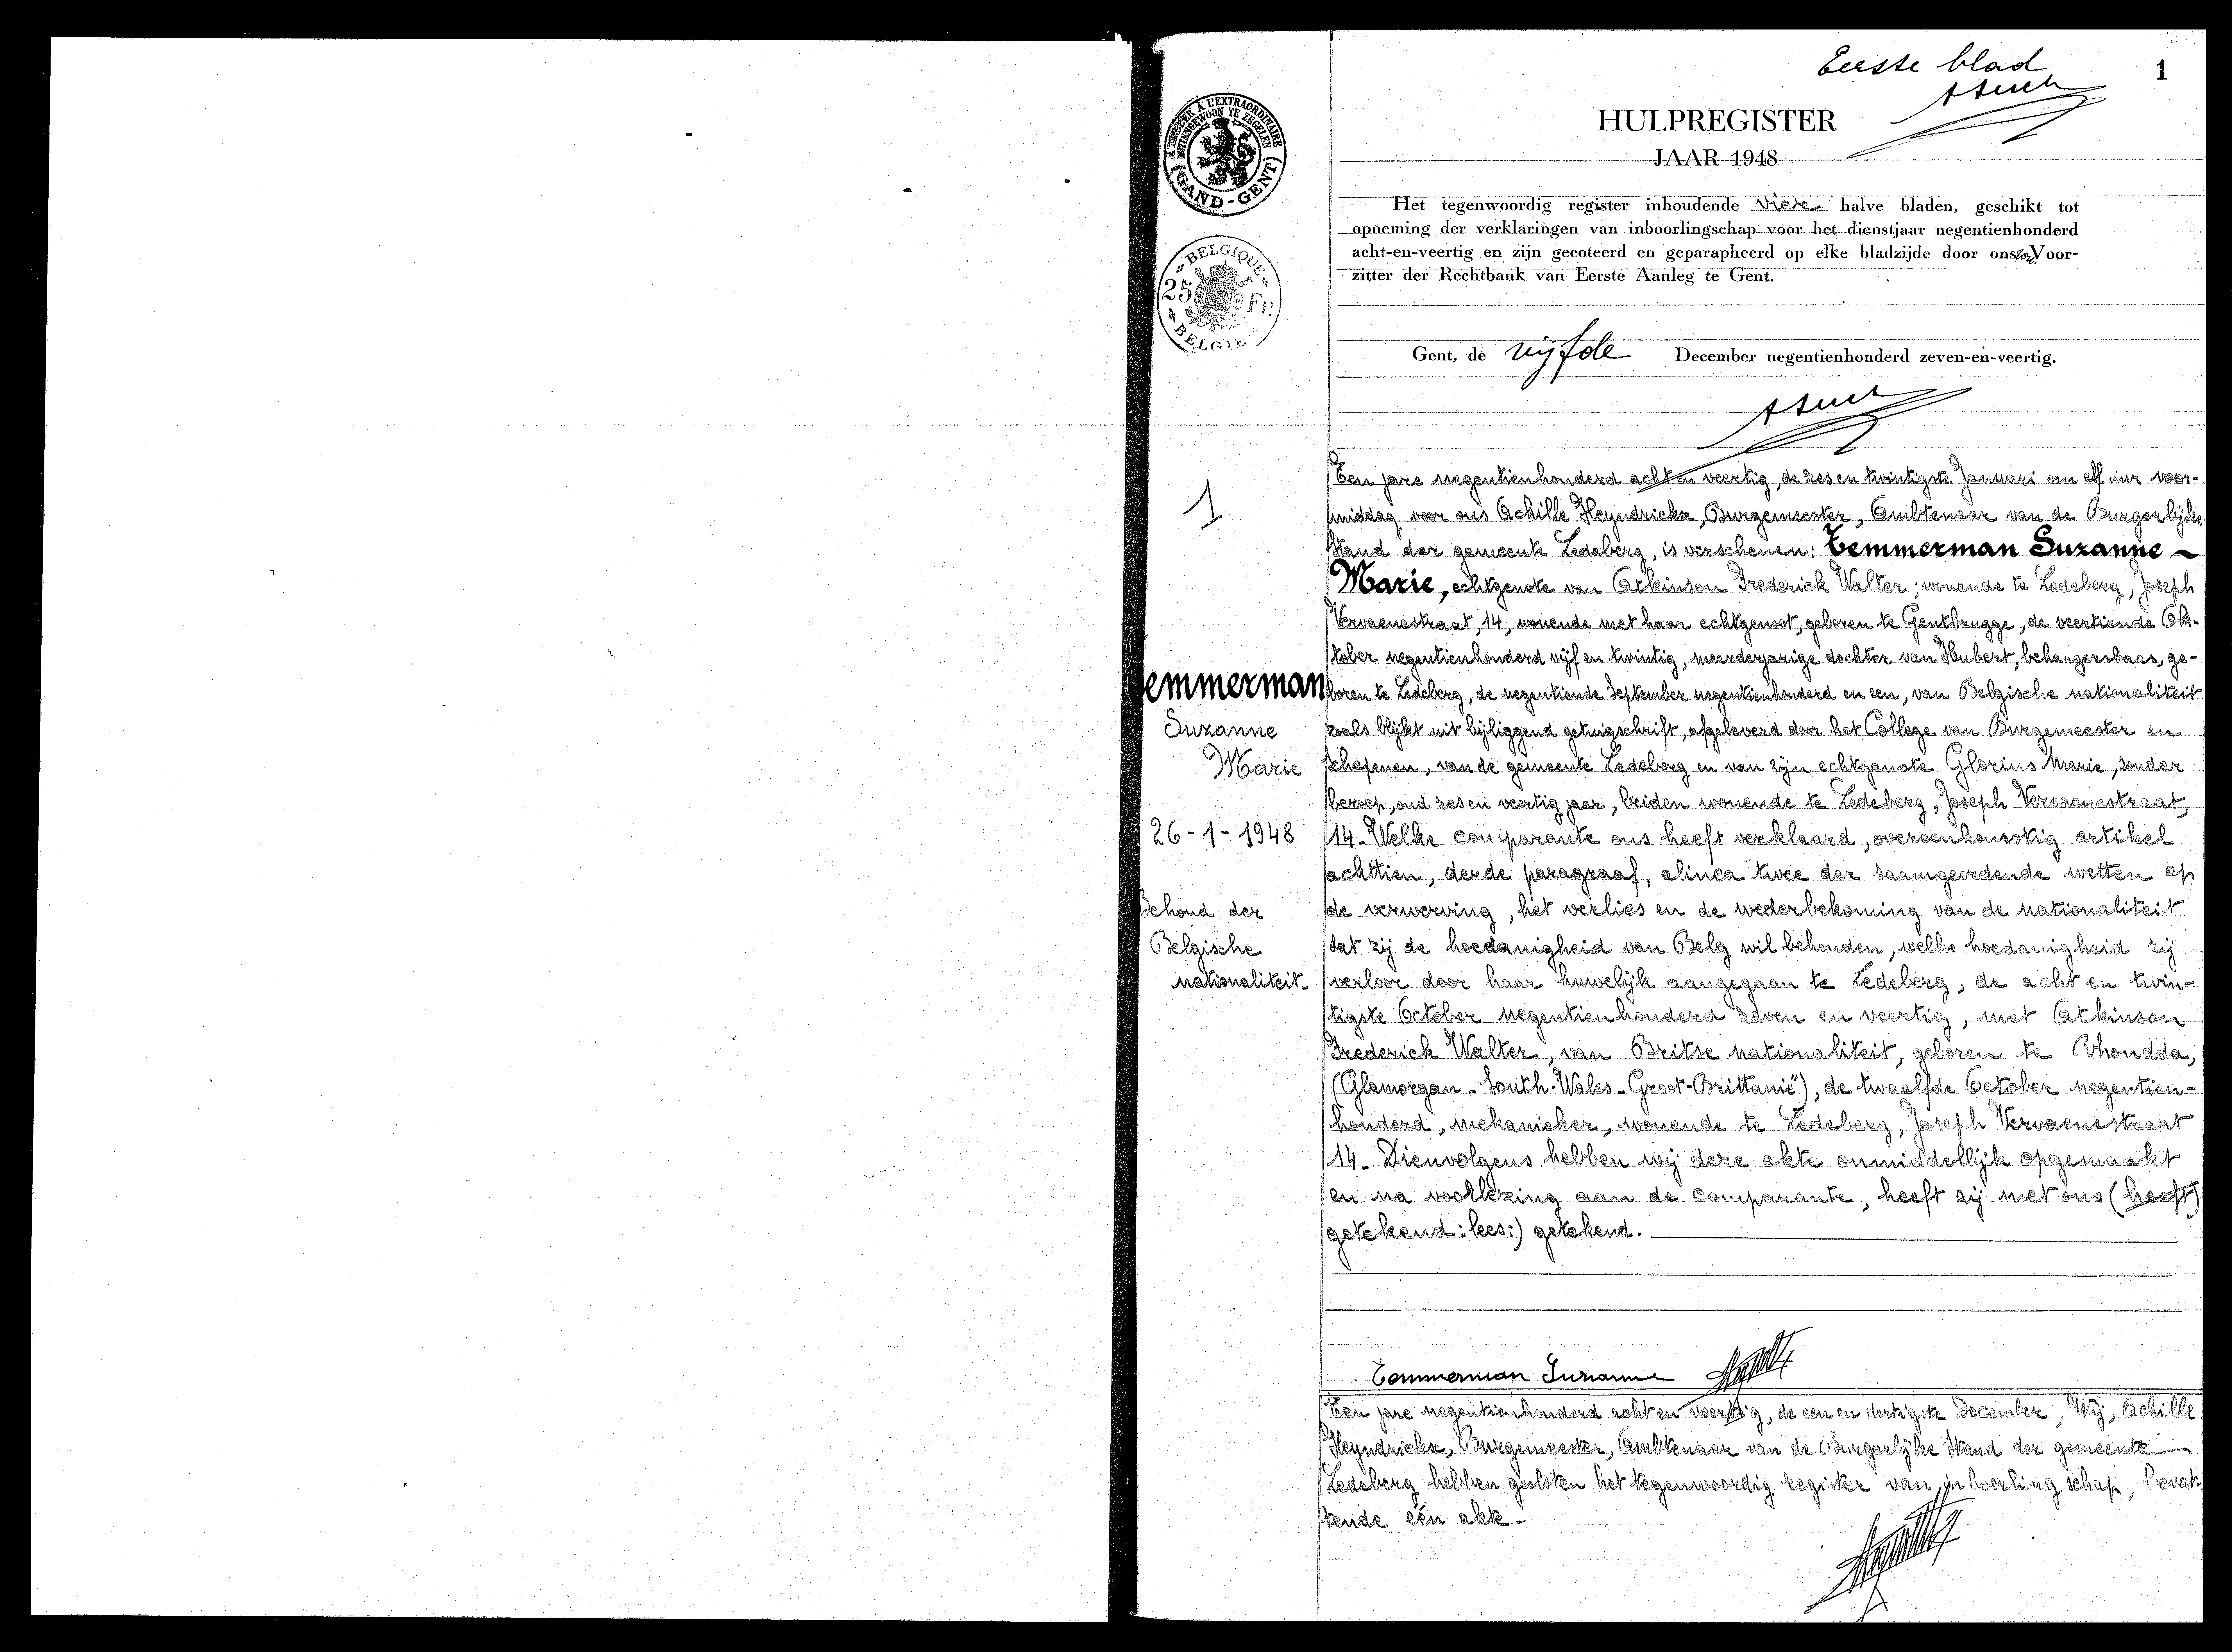 Eerste blad
1
HULPREGISTER
JAAR 1948
A L'EXTRAORDINAIRE
BUITENGEWOON TE ZEGELEN
(GAND-GENT)
BELGIQUE
25 Fr.
BELGIE
Het tegenwoordig register inhoudende vier halve bladen, geschikt tot
opneming der verklaringen van inboorlingschap voor het dienstjaar negentienhonderd
acht-en-veertig en zijn gecoteerd en geparapheerd op elke bladzijde door ons Voor-
zitter der Rechtbank van Eerste Aanleg te Gent.
Gent, de vijfde December negentienhonderd zeven-en-veertig.
1
Ten jare negentienhonderd acht en veertig, de zes en twintigste Januari om elf uur voor-
middag voor ons Achille Heyndrickx, Burgemeester, Ambtenaar van de Burgerlijke
Stand der gemeente Ledeberg, is verschenen: Temmerman Suzanne ~
Marie, echtgenote van Atkinson Frederick Walter; wonende te Ledeberg, Joseph
Vervaenestraat, 14, wonende met haar echtgenoot, geboren te Gentbrugge, de veertiende Ok-
tober negentienhonderd vijf en twintig, meerderjarige dochter van Hubert, behangersbaas, ge-
boren te Ledeberg, de negentiende September negentienhonderd en een, van Belgische nationaliteit
zoals blijkt uit bijliggend getuigschrift, afgeleverd door het College van Burgemeester en
Schepenen, van de gemeente Ledeberg en van zijn echtgenote Glorius Marie, zonder
beroep, oud zes en veertig jaar, beiden wonende te Ledeberg, Joseph Vervaenestraat,
14. Welke comparante ons heeft verklaard, overeenkomstig artikel
achttien, derde paragraaf, alinea twee der saamgeordende wetten op
de verwerving, het verlies en de wederbekoming van de nationaliteit
dat zij de hoedanigheid van Belg wil behouden, welke hoedanigheid zij
verloor door haar huwelijk aangegaan te Ledeberg, de acht en twin-
tigste October negentienhonderd zeven en veertig, met Atkinson
Frederick Walter, van Britse nationaliteit, geboren te Rhondda,
(Glamorgan - South-Wales - Groot-Brittanië), de twaalfde October negentien-
honderd, mekanieker, wonende te Ledeberg, Joseph Vervaenestraat
14. Dienvolgens hebben wij deze akte onmiddellijk opgemaakt
en na voorlezing aan de comparante, heeft zij met ons (heeft)
getekend: lees:) getekend.
Temmerman
Suzanne
Marie
26-1-1948
Behoud der
Belgische
nationaliteit.
Temmerman Suzanne
Ten jare negentienhonderd acht en veertig, de een en dertigste December, Wij, Achille
Heyndrickx, Burgemeester, Ambtenaar van de Burgerlijke Stand der gemeente
Ledeberg hebben gesloten het tegenwoordig register van inboorlingschap, bevat-
tende één akte -